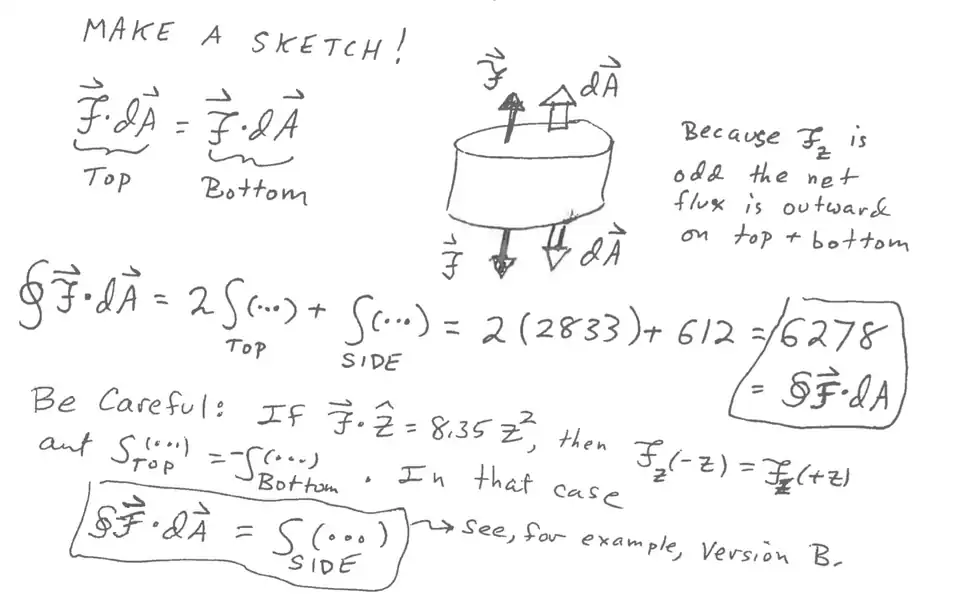 MAKE A SKETCH!
𝓕⃗·dA⃗ = 𝓕⃗·dA⃗
TOP Bottom
𝓕⃗ dA⃗
𝓕⃗ dA⃗
Because 𝓕_z is
odd the net
flux is outward
on top + bottom
∮𝓕⃗·dA⃗ = 2∫_TOP(...) + ∫_SIDE(...) = 2(2833) + 612 = 6278
= ∮𝓕⃗·dA
Be Careful: If 𝓕⃗·ẑ = 8.35 z², then 𝓕_z(-z) = 𝓕_z(+z)
ant ∫_TOP(...) = -∫_Bottom(...). In that case
∮𝓕⃗·dA⃗ = ∫_SIDE(...) → see, for example, Version B.